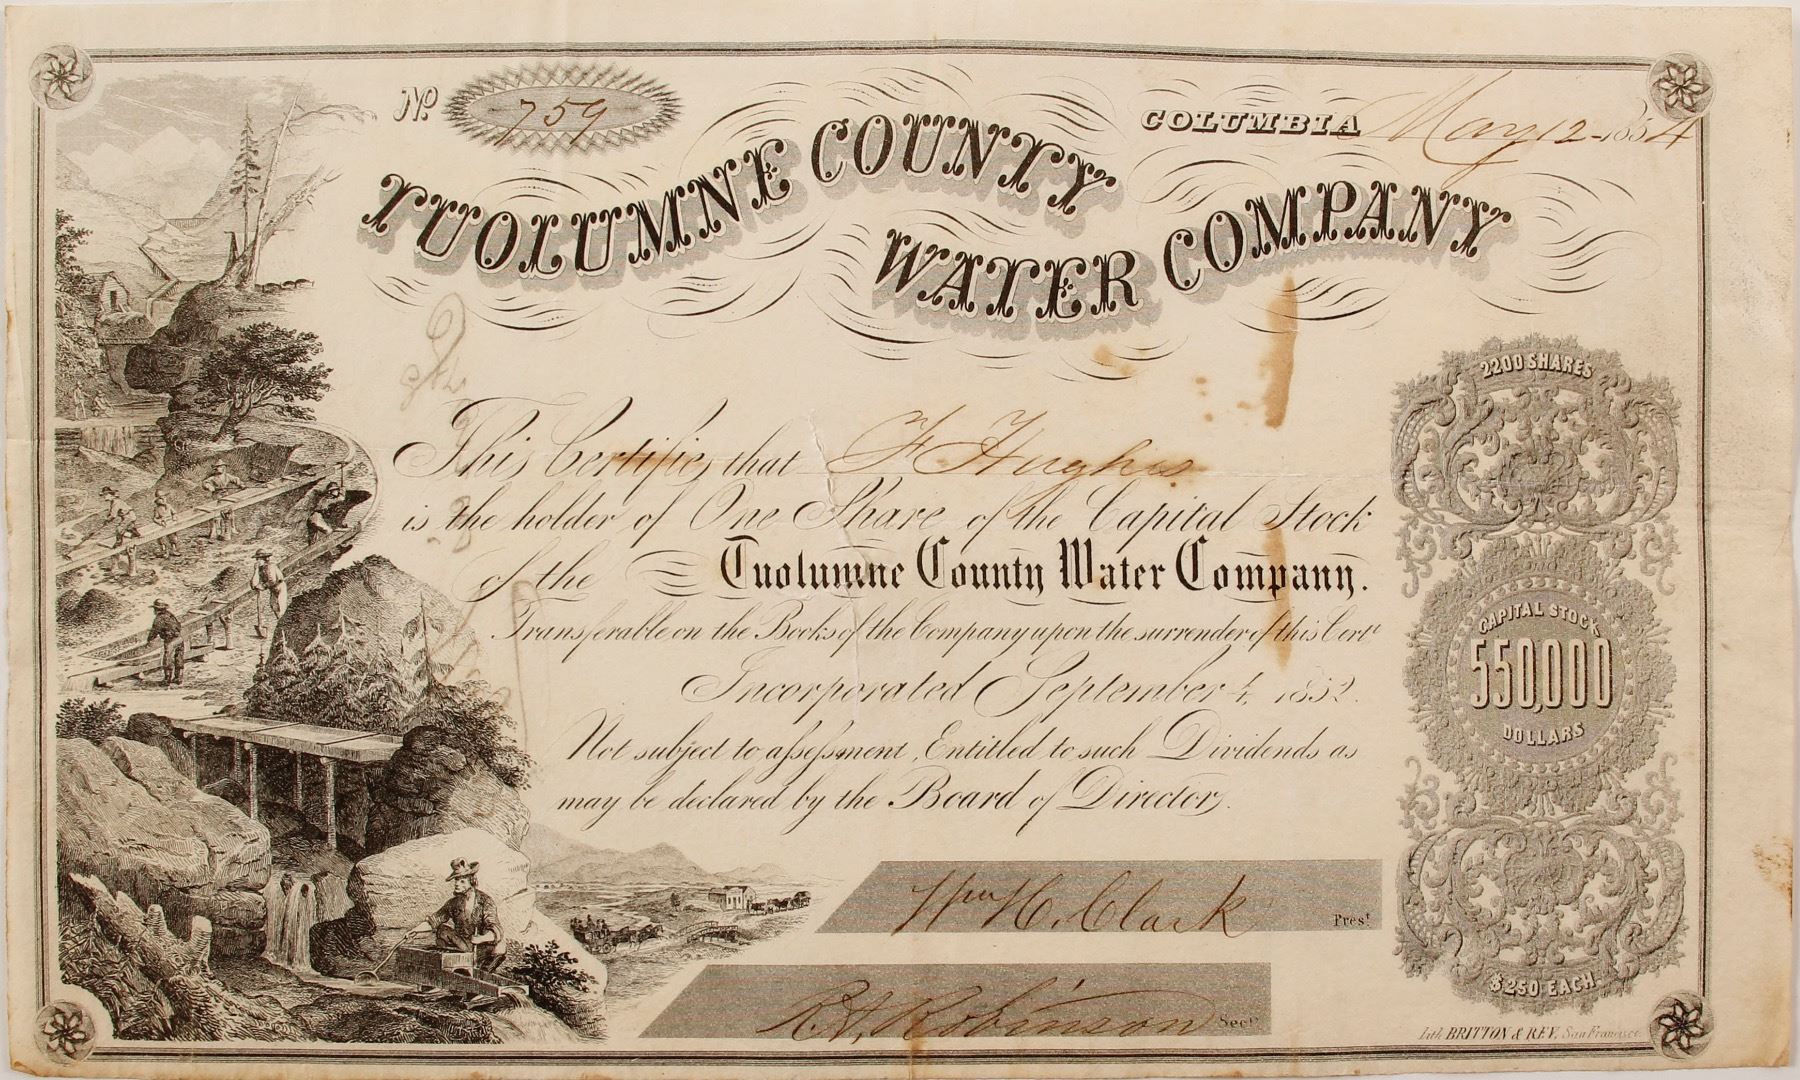 No. 759
COLUMBIA May 12 1854
TUOLUMNE COUNTY
WATER COMPANY
This Certifies that F Hughes
is the holder of One Share of the Capital Stock
of the Tuolumne County Water Company.
Transferable on the Books of the Company upon the surrender of this Certt
Incorporated September 4, 1852.
Not subject to assessment, Entitled to such Dividends as
may be declared by the Board of Directors.
Wm H. Clark Prest
R. A. Robinson Secy
2200 SHARES
CAPITAL STOCK
550,000
DOLLARS
$250 EACH
Lith. BRITTON & REY, San Francisco